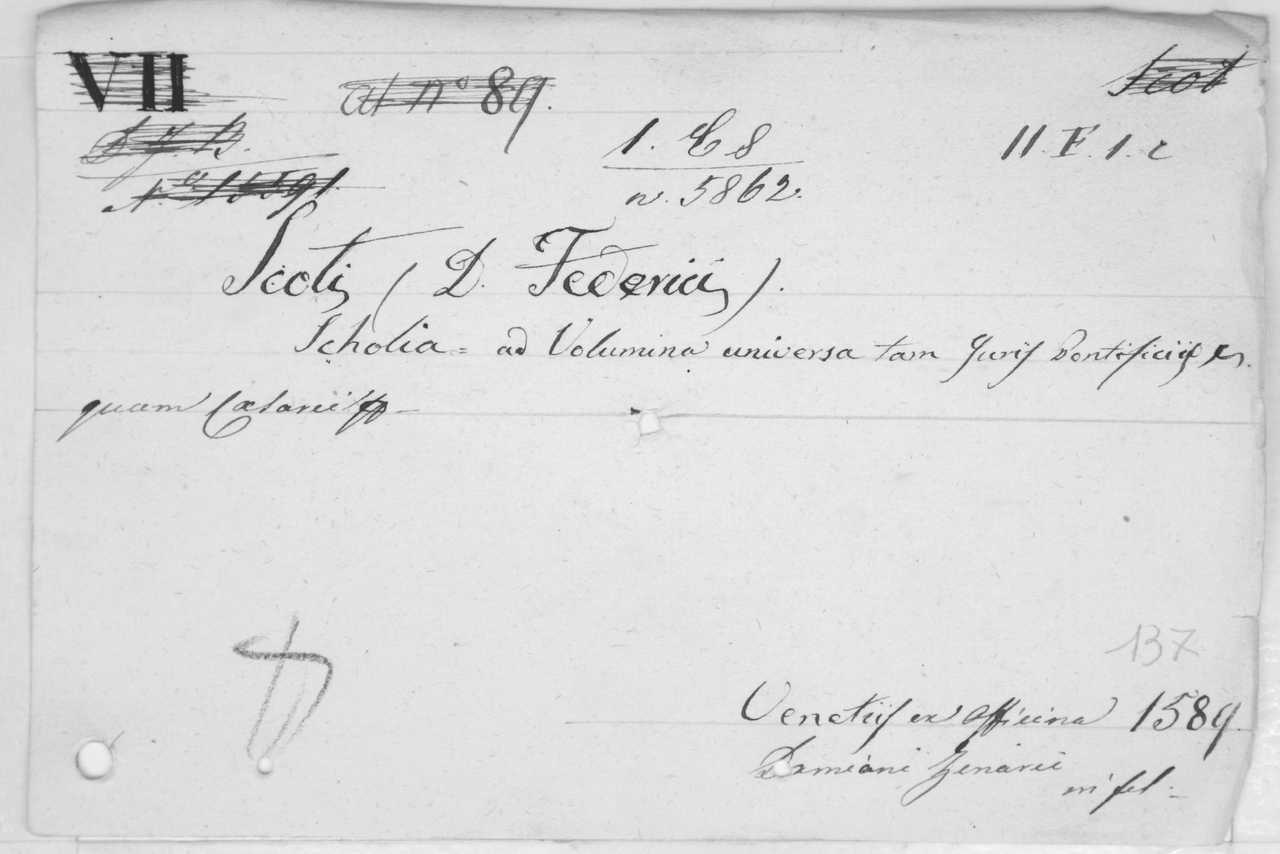 VII
at nº 89.
Scot
S. J. B.
1. C 8
11. F. 1. c
Nº 15591
n. 5862.
Scoti (D. Federici).
Scholia = ad Volumina universa tam Juris Pontificii
quam Cæsarei
137
Venetiis ex Officina 1589.
Damiani Zenarii
in fol -